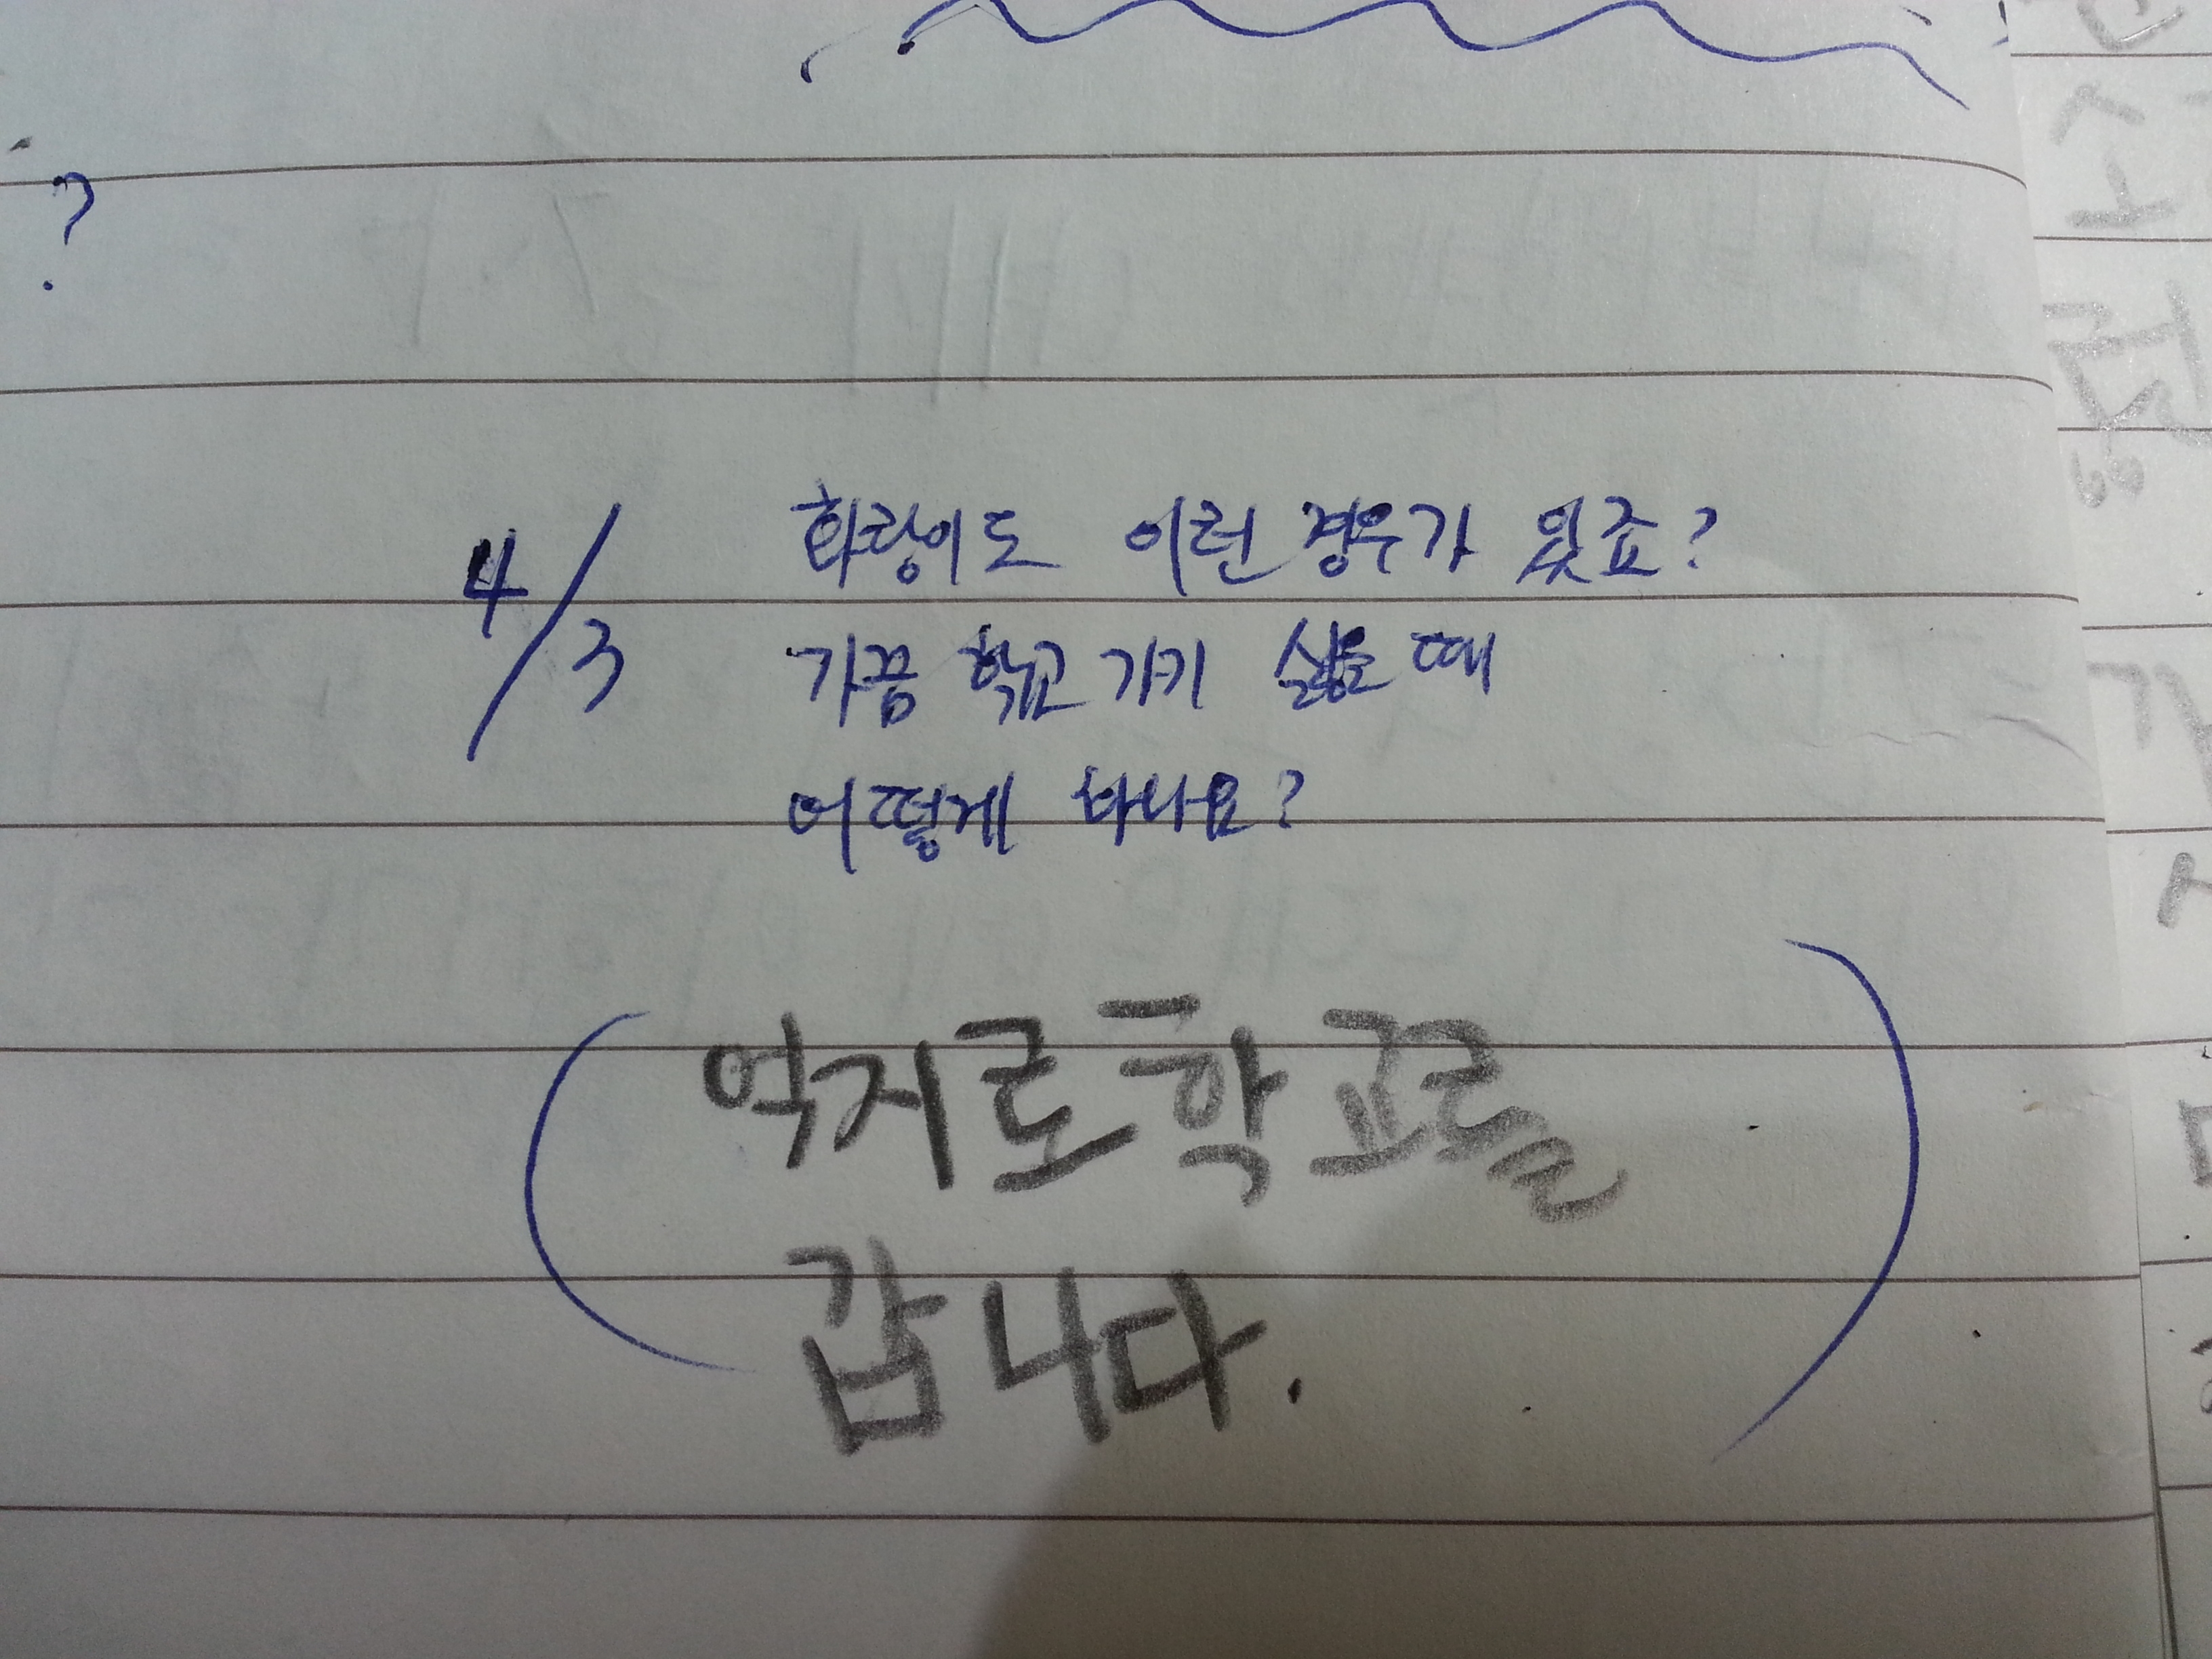 ?
4/3
화랑이도 이런 경우가 있죠?
가끔 학교 가기 싫을 때
어떻게 하나요?
(억지로 학교를
갑니다.)